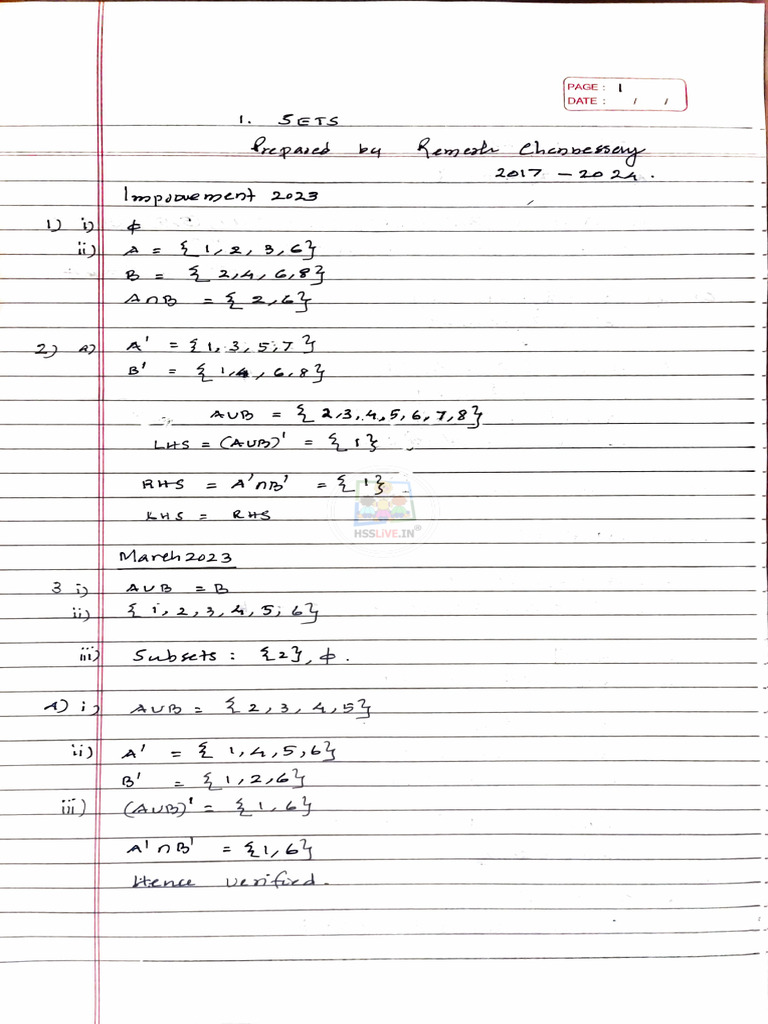 PAGE : 1
DATE : / /
1. SETS
Prepared by Remesh Chennessery
2017 - 2024.
Improvement 2023
1) i) ϕ
ii) A = {1, 2, 3, 6}
B = {2, 4, 6, 8}
A∩B = {2, 6}
2) a) A' = {1, 3, 5, 7}
B' = {1, 4, 6, 8}
A∪B = {2, 3, 4, 5, 6, 7, 8}
LHS = (A∪B)' = {1}
RHS = A'∩B' = {1}
LHS = RHS
HSSLIVE.IN
March 2023
3 i) A∪B = B
ii) {1, 2, 3, 4, 5, 6}
iii) Subsets : {2}, ϕ.
4) i) A∪B = {2, 3, 4, 5}
ii) A' = {1, 4, 5, 6}
B' = {1, 2, 6}
iii) (A∪B)' = {1, 6}
A'∩B' = {1, 6}
Hence verified.